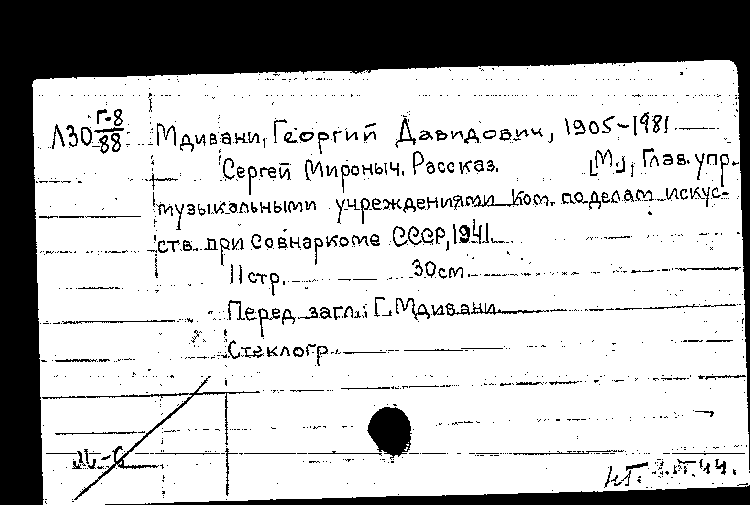 Л30 Г-8/88 Мдивани, Георгий Давидович, 1905-1981
Сергей Мироныч. Рассказ. [М.], Глав. упр.
музыкальными учреждениями Ком. по делам искус-
ств при Совнаркоме СССР, 1941.
11 стр. 30 см.
Перед загл.: Г. Мдивани.
Стеклогр.